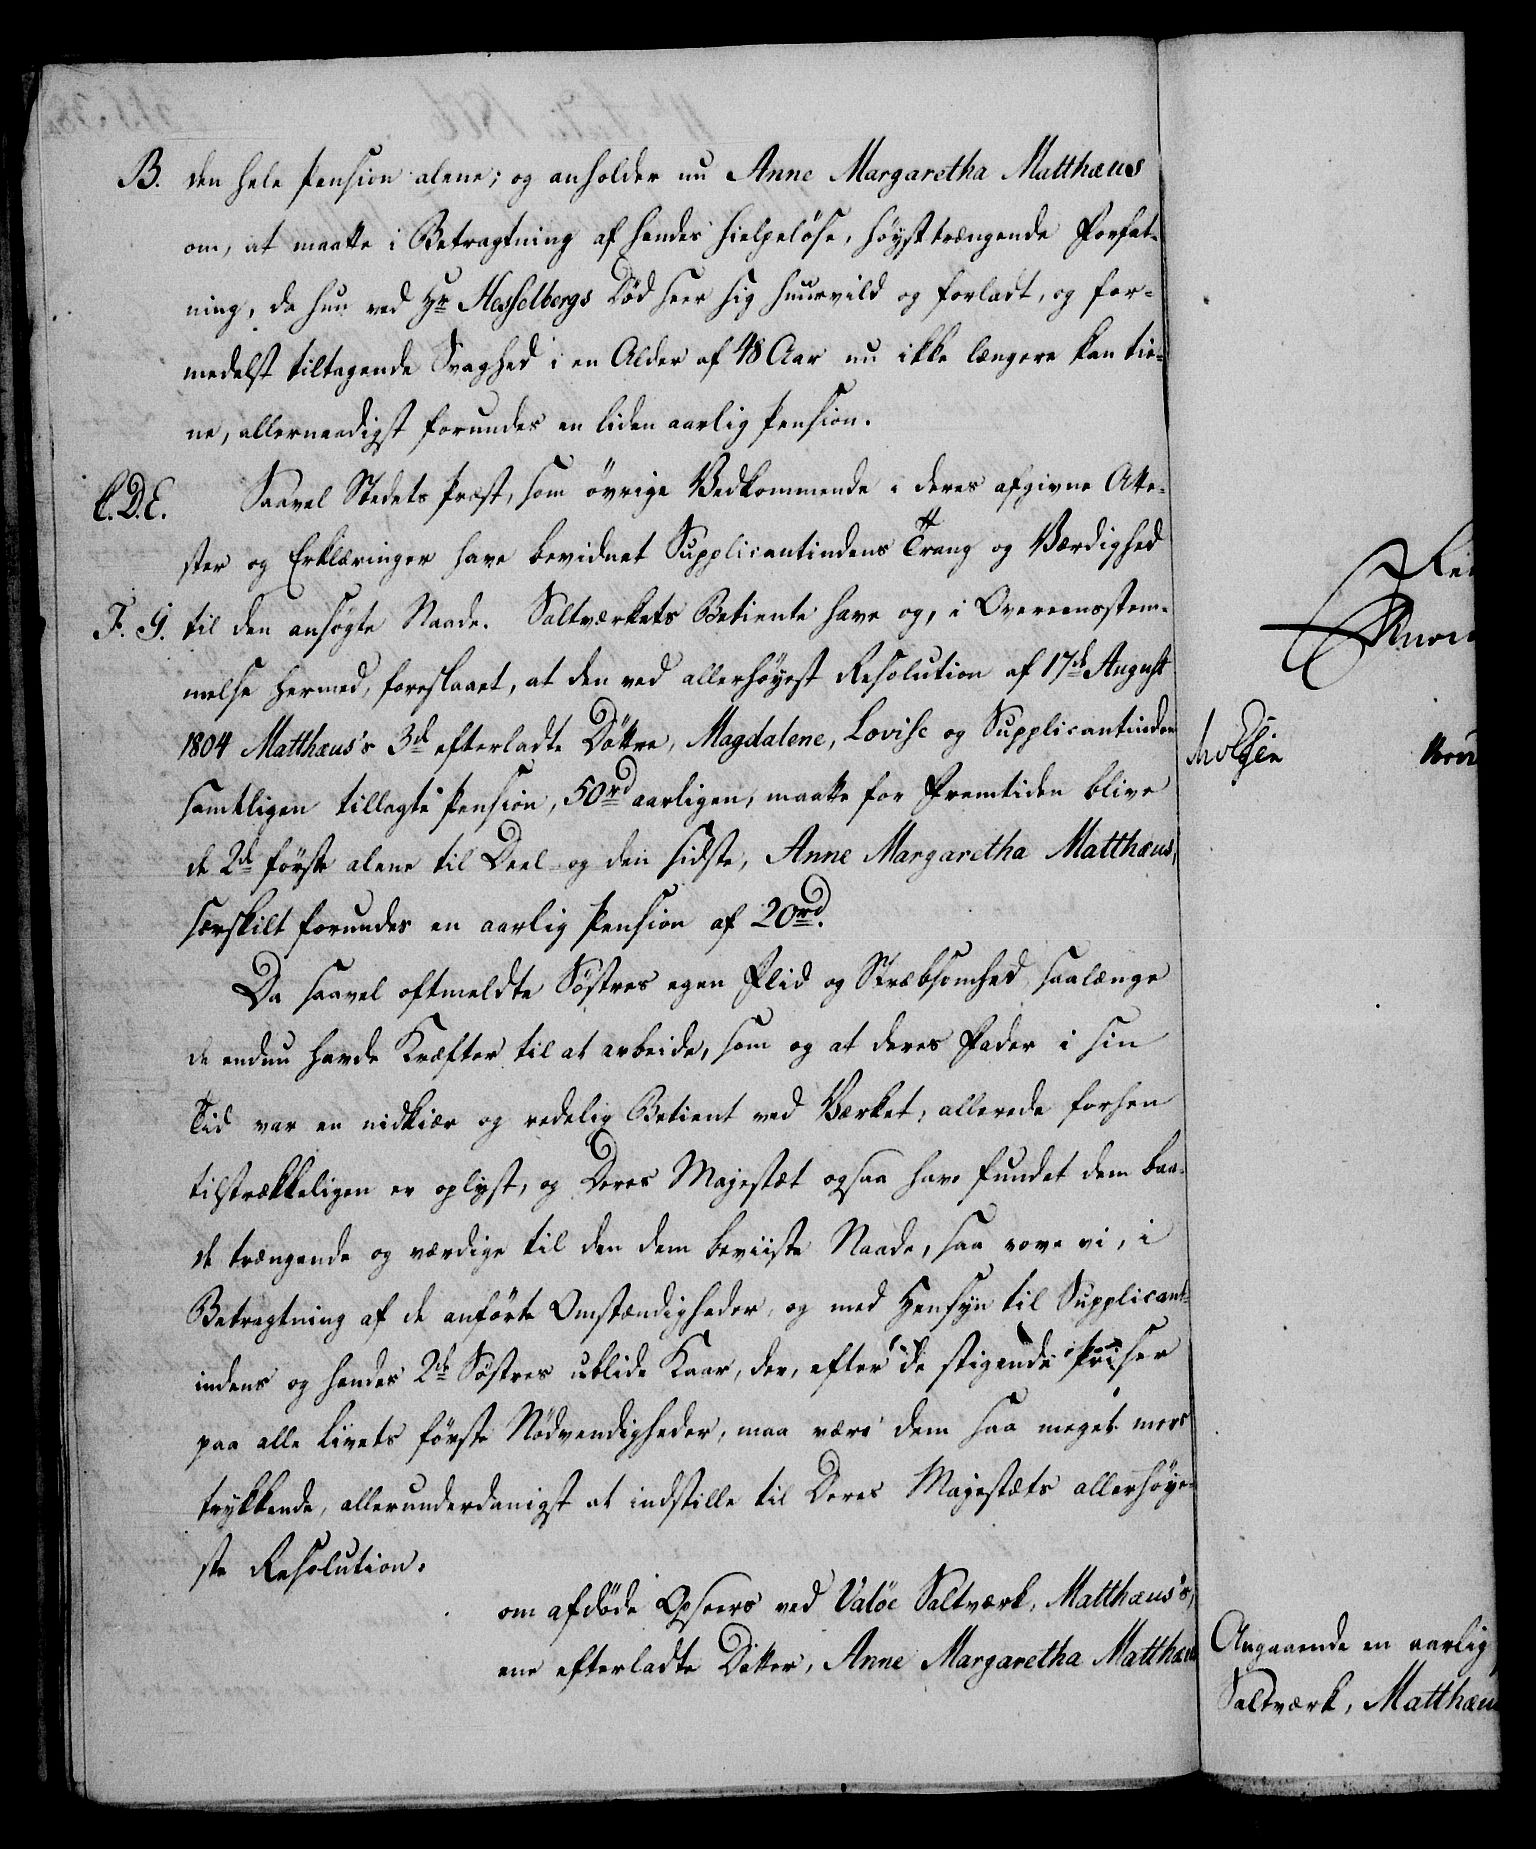 B. den hele Pension alene; og anholder nu Anne Margaretha Matthæus
om, at maatte i Betragtning af hendes hielpelöse, höysttrængende Forfat-
ning, da hun ved Hr Hesselbergs Död seer sig huusvild og forladt, og for-
medelst tiltagende Svaghed i en Alder af 48 Aar nu ikke længere kan tie-
ne, allernaadigst forundes en liden aarlig Pension.
C.D.E. Saavel Stedets Præst, som övrige Vedkommende i deres afgivne Atte-
ster og Erklæringer have bevidnet Supplicantindens Trang og Værdighed
F. G. til den ansögte Naade. Saltværkets Betiente have og, i Overeensstem-
melse hermed, foreslaaet, at den ved allerhöyest Resolution af 17de August
1804 Matthæus's 3de efterladte Döttre, Magdalene, Lovise og Supplicantinden
samtligen tillagte Pension, 50rd aarligen, maatte for Fremtiden blive
de 2de förste alene til Deel og den sidste, Anne Margaretha Matthæus,
særskilt forundes en aarlig Pension af 20rd.
Da saavel oftmeldte Söstres egen Flid og Stræbsomhed, saalænge
de endnu havde Kræfter til at arbeide, som og at deres Fader i sin
Tid var en nidkiær og redelig Betient ved Værket, allerede forhen
tilstrækkeligen er oplyst, og Deres Majestæt ogsaa have fundet dem baa-
de trængende og værdige til den dem beviiste Naade, saa vove vi, i
Betragtning af de anförte Omstændigheder, og med Hensyn til Supplicant-
indens og hendes 2de Söstres ublide Kaar, der, efter de stigende Priser
paa alle Livets förste Nödvendigheder, maa være dem saa meget mere
trykkende, allerunderdanigst at indstille til Deres Majestæts allerhöye-
ste Resolution.
om afdöde Opseers ved Valöe Saltværk, Matthæus's,
ene efterladte Datter, Anne Margaretha Matthæus
Angaaende en aarlig
Saltværk, Matthæus